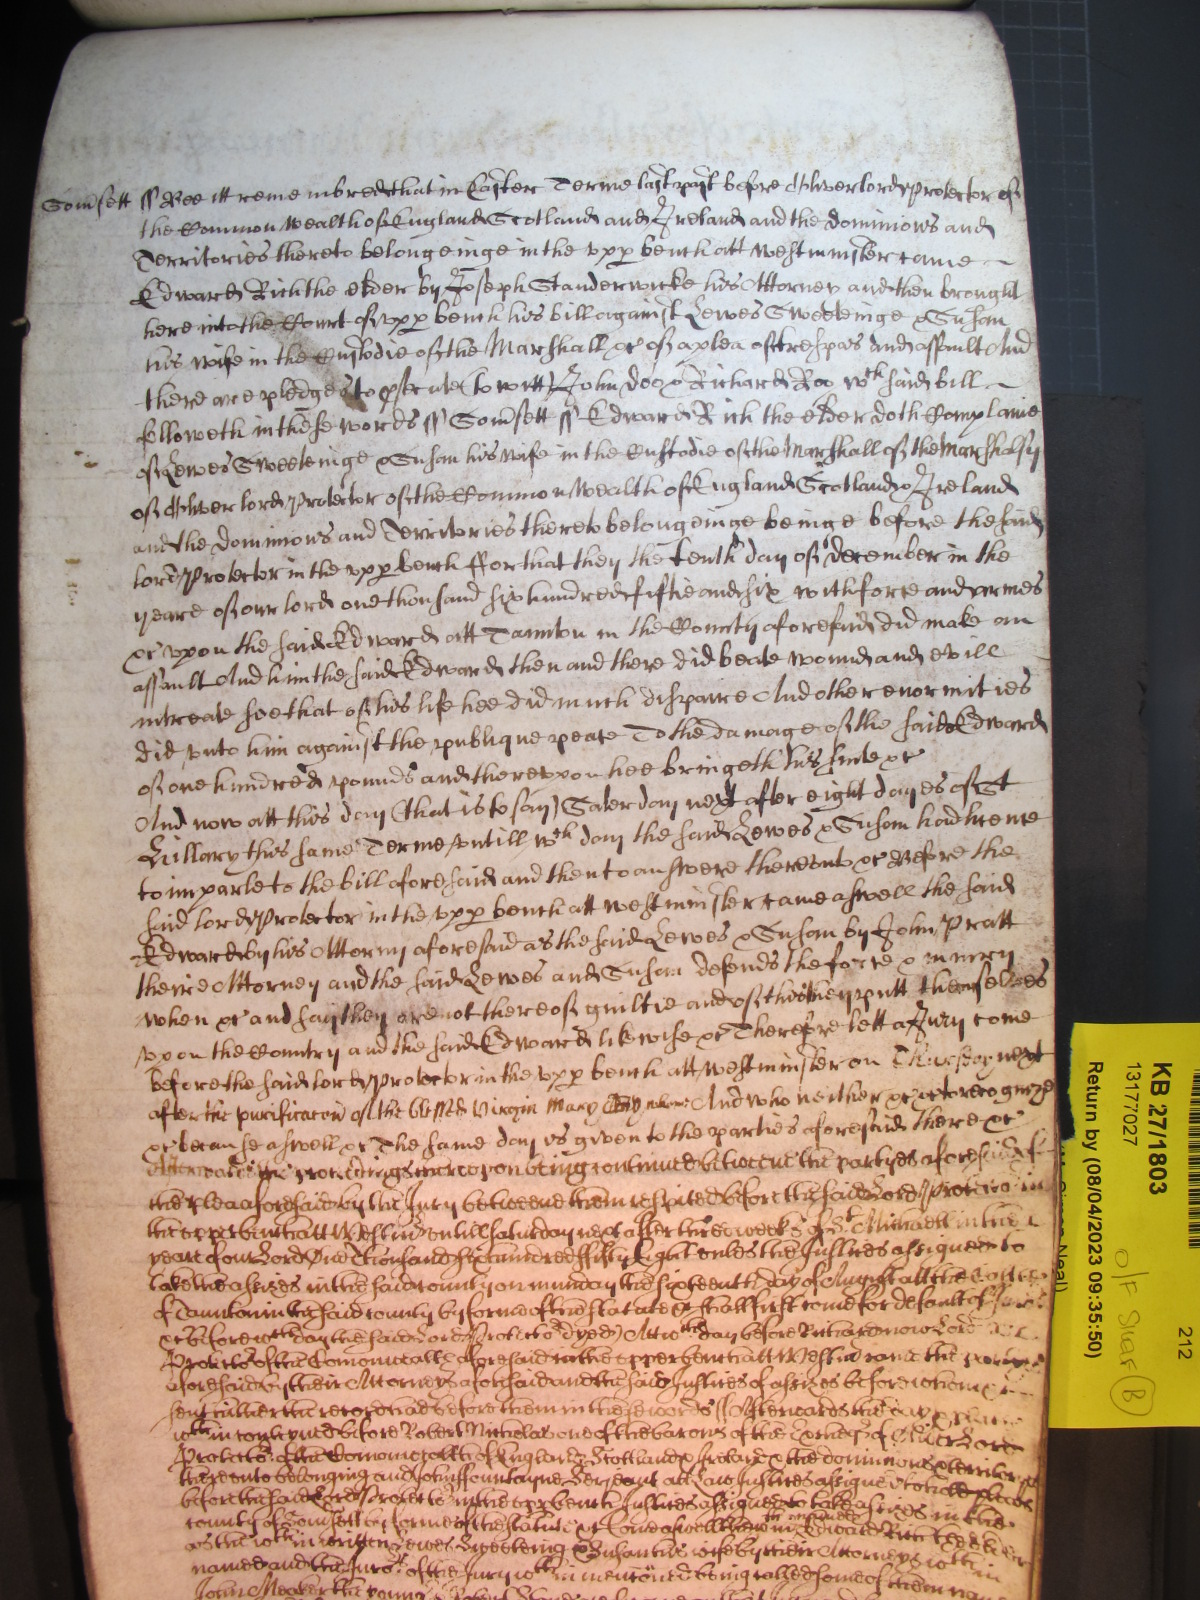 Som̃sett ss Bee itt remembred that in Easter Terme last past before Oliver lord Protector of
the Common Wealth of England Scotland and Ireland and the dominions and
Territories thereto belongeinge in the upp bench att westminster came
Edward Rich the elder by Joseph Standerwicke his Attorney and then brought
here into the Court of upp bench his bill against Lewes Sweeteinge & Susan
his wife in the Custodie of the Marshall &c of a plea of trespas and assault And
there are pledges to psecute (to witt) John Doo & Richard Roo wch said bill
followeth in these words ss Som̃sett ss Edward Rich the elder doth Complaine
of Lewes Sweeteinge & Susan his wife in the Custodie of the Marshall of the Marshalsy
of Oliver lord Protector of the Common Wealth of England Scotland & Ireland
and the dominions and Territories thereto belongeinge beinge before the said
lord Protector in the upp bench ffor that they the tenth day of december in the
yeare of our lord one thousand six hundred fiftie and six with force and armes
&c upon the said Edward att Taunton in the County aforesaid did make an
assault And him the said Edward then and there did beate wound and evill
intreate soe that of his life hee did much dispaire And other enormities
did unto him against the publique peace To the damage of the said Edward
of one hundred pounds and thereupon hee bringeth this suite &c
And now att this day (that is to say) Saterday next after eight dayes of St
Hillary this same Terme untill wch day the said Lewes & Susan had licence
to imparle to the bill aforesaid and then to answere thereunto &c Before the
said lord Protector in the upp bench att westminster came aswell the said
Edward by his Attorny aforesaid as the said Lewes & Susan by John Pratt
theire Attorney and the said Lewes and Susan defends the force & iniury
when &c and say they are not thereof guiltie and of this they putt themselves
upon the Country and the said Edward likewise &c Therefore lett a Jury come
before the said lord Protector in the upp bench att westminster on Thursday next
after the purificacon of the blessed Virgin Mary And who neither &c to recognize
&c because aswell &c The same day is given to the parties aforesaid there &c
Afterwards the proceedings thereupon being continued betweene the parties aforesaid of
the Plea aforesaid by the Jury betweene them respited before the said Lord Protector in
the upper bench att Westmr untill Saturday next after three weekes of St Michaell in the
yeare of our Lord One thousand six hundred fifty Eight unles the Justices assigned to
take the assizes in the said county on munday the sixteenth day of August att the Castle
of Taunton in the said county by forme of the statute &c shall first come for default of
&c before wch day the said Lord Protector dyed Att wch day before Richard now Lord
Protector of the Comonwealth aforesaid in the upper bench att Westmr came the parties
aforesaid by their Attorneys aforesaid and the said Justices of assizes before whom &c
sent hither the record had before them in these words ss Afterwards the day & place
within conteyned before Robert Nicholas one of the barons of the Excheqr of Oliver Lord
Protector of the Comonwealth of England Scotland & Ireland & the dominions & territories
thereunto belonging and John ffountayne Serjeant att Law Justices assigned to hold pleas
before the said Lord Protector in the upper bench Justices assigned to take assizes in the
county of Somsett by forme of the statute &c Come aswell the within named Edward Rich the elder
as the within written Lewes Sweeteing & Susan his wife by their Attorneys within
named and the Jurors of the Jury within mentioned being called some of them
John the
KB 27/1803
13177027
Return by (08/04/2023 09:35:50)
212
B